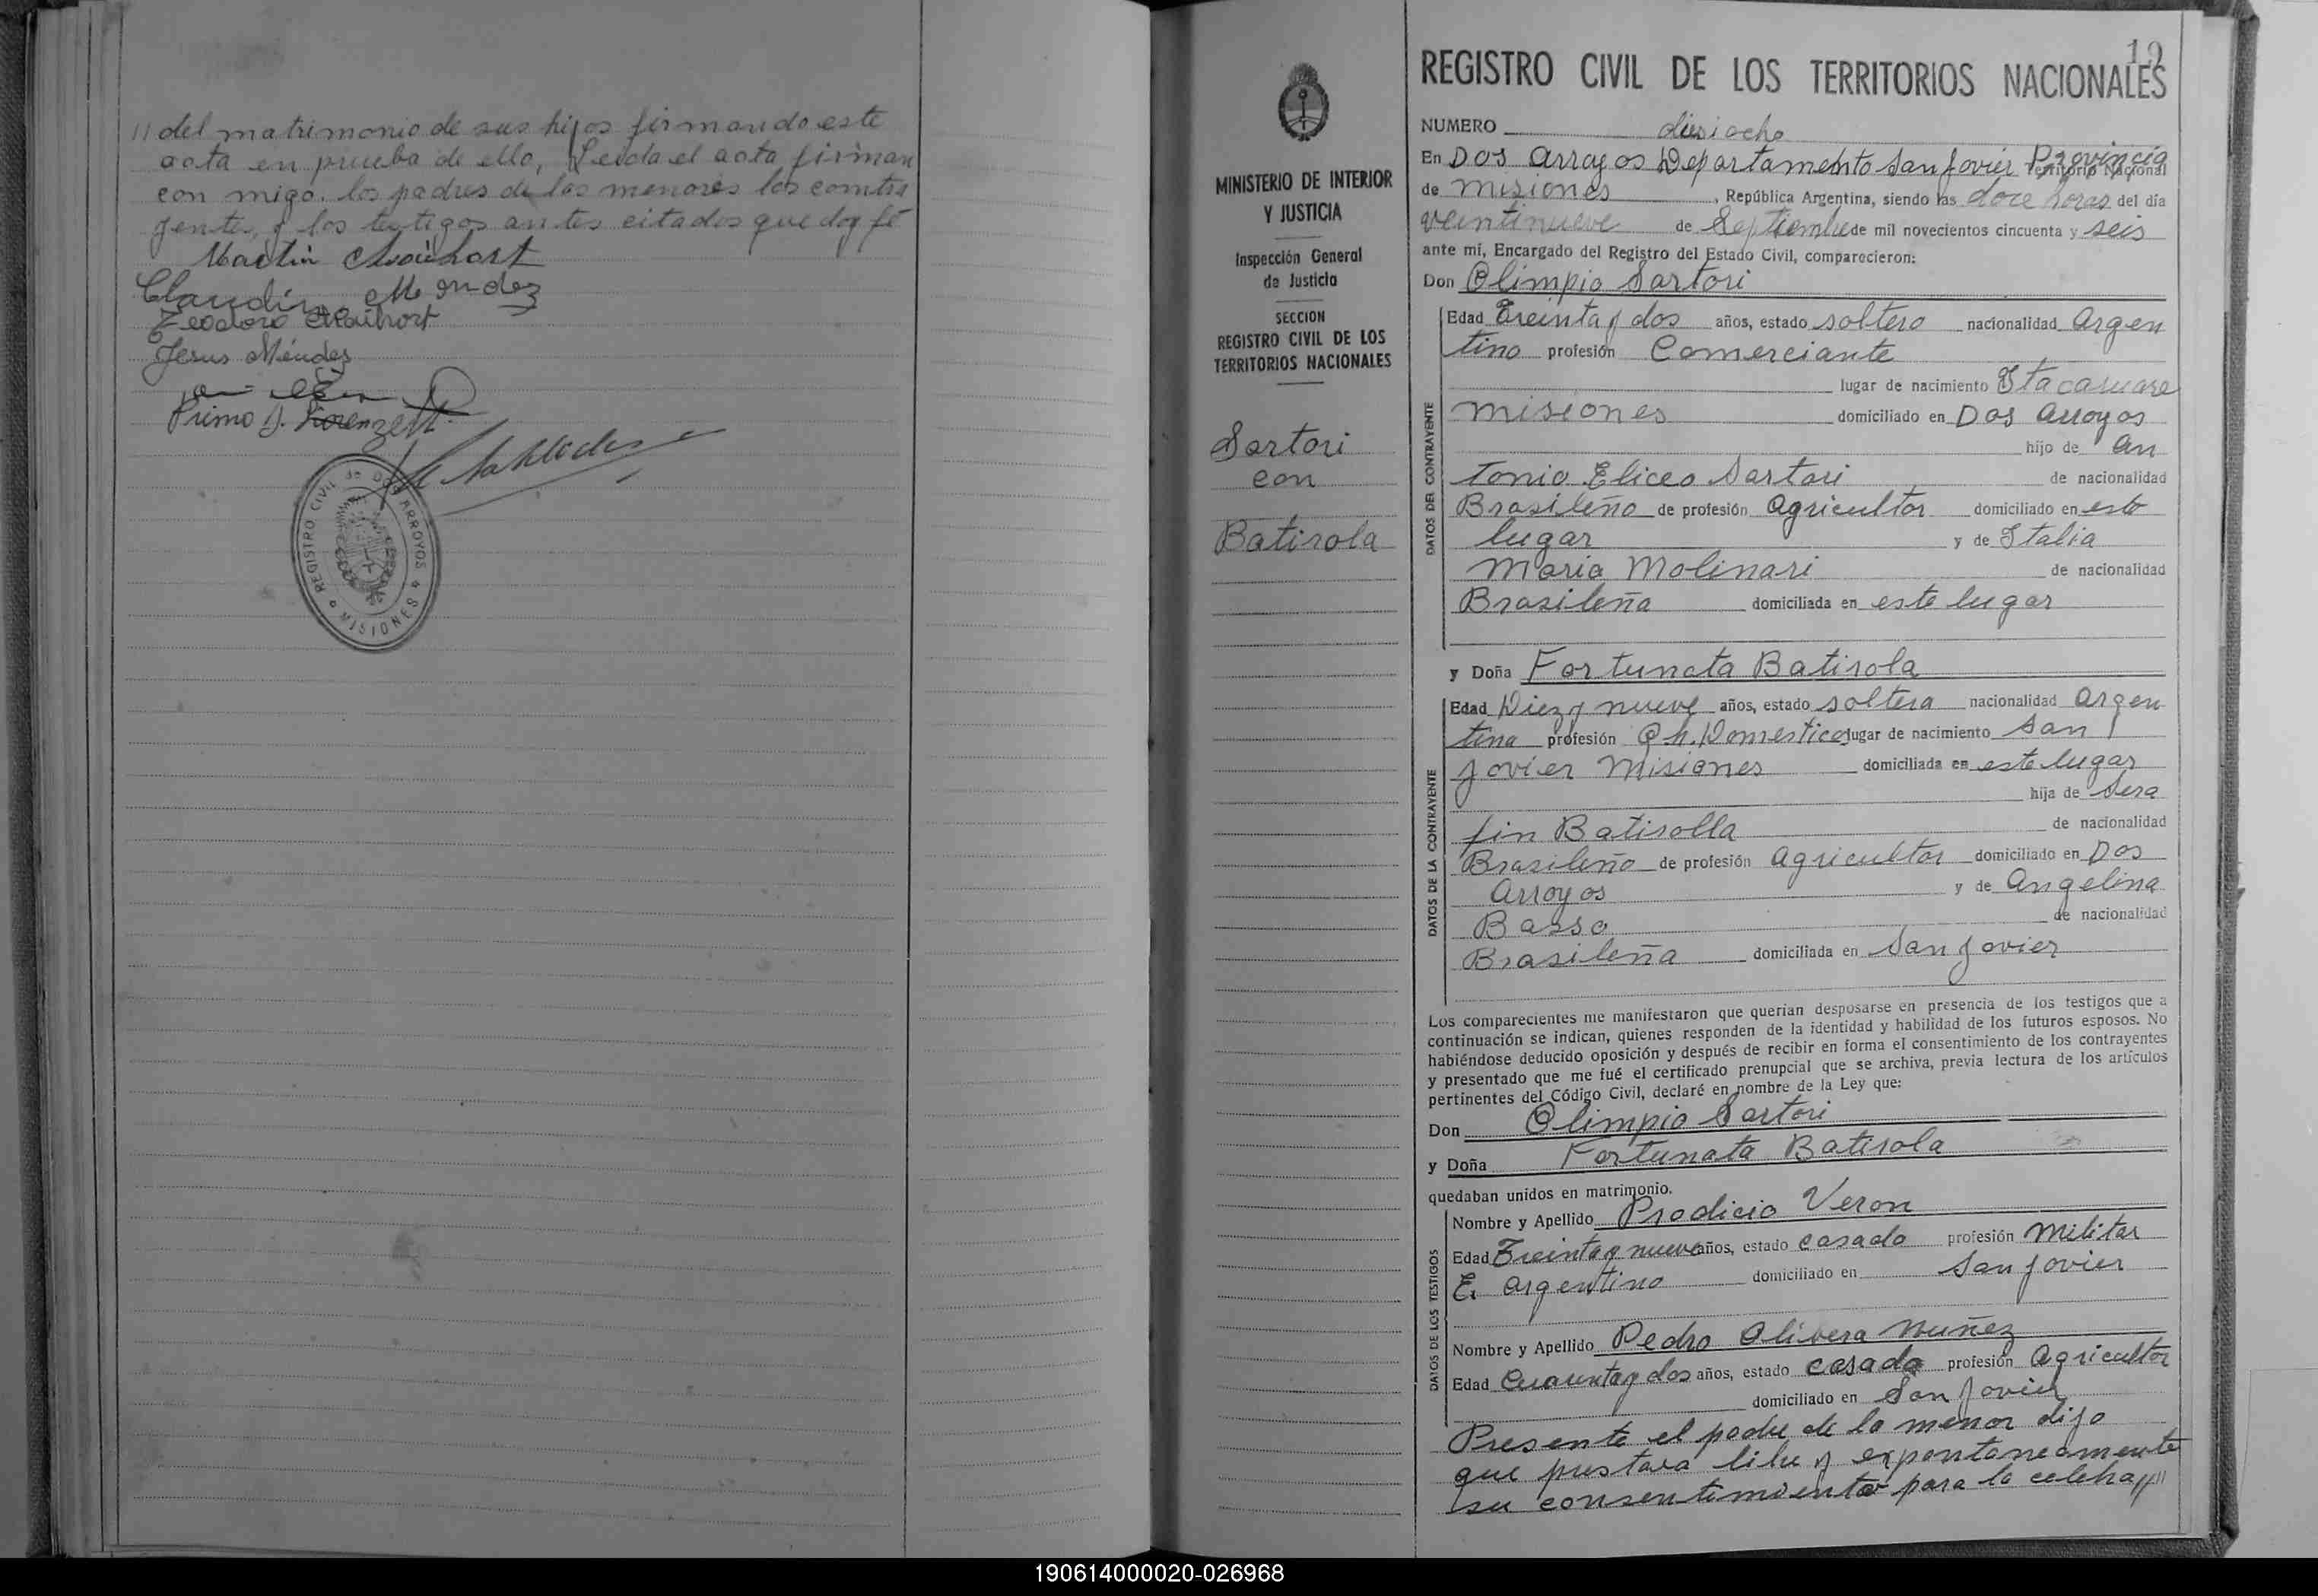 // del matrimonio de sus hijos firmando este
acta en prueba de ello, Leida el acta firman
con migo los padres de los menores los contra
yentes, y los testigos antes citados que doy fé
Martin
Claudina Mendez
Teodoro
Jesus Méndez
Primo J. Lorenzetti
REGISTRO CIVIL de DOS ARROYOS
MISIONES
19
REGISTRO CIVIL DE LOS TERRITORIOS NACIONALES
MINISTERIO DE INTERIOR
Y JUSTICIA
Inspección General
de Justicia
SECCION
REGISTRO CIVIL DE LOS
TERRITORIOS NACIONALES
Sartori
con
Batirola
NUMERO diesiocho
En Dos Arroyos Departamento San Javier Provincia Territorio Nacional
de Misiones, República Argentina, siendo las doce horas del día
veintinueve de Septiembre de mil novecientos cincuenta y seis
ante mí, Encargado del Registro del Estado Civil, comparecieron:
Don Olimpio Sartori
DATOS DEL CONTRAYENTE
Edad Treinta y dos años, estado soltero nacionalidad Argen
tino profesión Comerciante
lugar de nacimiento Itacaruare
Misiones domiciliado en Dos Arroyos
hijo de An
tonio Eliceo Sartori de nacionalidad
Brasileño de profesión Agricultor domiciliado en esto
lugar y de Italia
Maria Molinari de nacionalidad
Brasileña domiciliada en este lugar
y Doña Fortunata Batirola
DATOS DE LA CONTRAYENTE
Edad Diez y nueve años, estado soltera nacionalidad Argen
tina profesión Qh. Domesticos lugar de nacimiento San
Javier Misiones domiciliada en este lugar
hija de Sera
fin Batirolla de nacionalidad
Brasileño de profesión Agricultor domiciliado en Dos
Arroyos y de Angelina
Basso de nacionalidad
Brasileña domiciliada en San Javier
Los comparecientes me manifestaron que querían desposarse en presencia de los testigos que a
continuación se indican, quienes responden de la identidad y habilidad de los futuros esposos. No
habiéndose deducido oposición y después de recibir en forma el consentimiento de los contrayentes
y presentado que me fué el certificado prenupcial que se archiva, previa lectura de los artículos
pertinentes del Código Civil, declaré en nombre de la Ley que:
Don Olimpio Sartori
y Doña Fortunata Batirola
quedaban unidos en matrimonio.
DATOS DE LOS TESTIGOS
Nombre y Apellido Prodicio Veron
Edad Treinta y nueve años, estado casado profesión Militar
E. Argentino domiciliado en San Javier
Nombre y Apellido Pedro Olivera Nuñez
Edad Cuarenta y dos años, estado casado profesión Agricultor
domiciliado en San Javier
Presente el padre de la menor dijo
que prestava libre y expontaneamente
su consentimiento para la celebra //
190614000020-026968